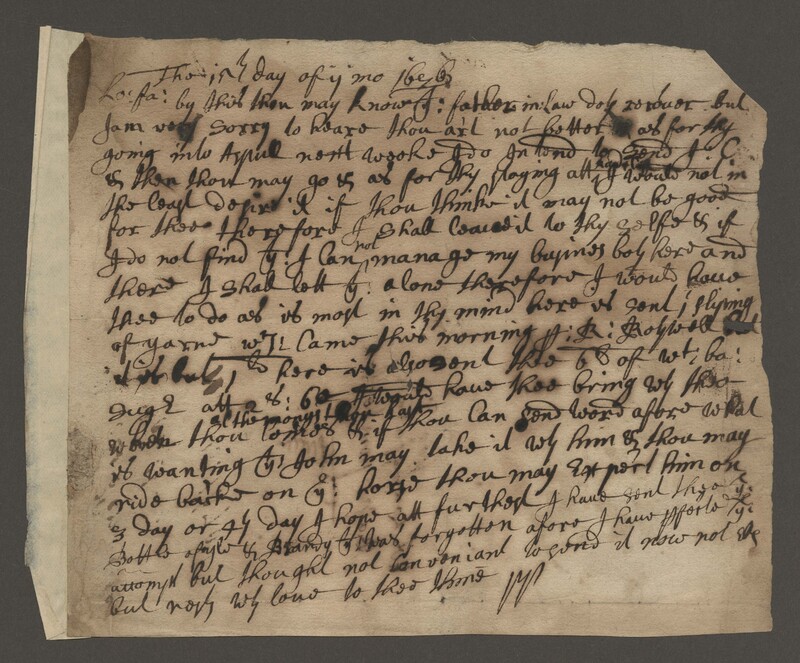 The 15th day of ij mo 1676
Lo: fa: by this thou may know yt: father in law doth recover but
I am very sorry to heare thou art not better as for thy
going into next weeke I do Intend to send J C
& then thou may go & as for thy staying att I would not in
the least desire it if thou thinke it may not be good
for thee therefore I shall leave it to thy selfe & if
I do not find yt: I can not manage my busines both here and
there I shall lett yt: alone therefore I would have
thee to do as is most in thy mind here is sent 1
of yarne wch: came this morning ff: R: but
it is but 1 here is also sent thee 6 of wt: ba:
sug att 8: 6 I would have thee bring with thee
when thou comes & if thou can send word afore what
is wanting yt: John may take it with him & thou may
ride backe on ye: horse thou may Expect him on
3 day or 4th day I hope att furthest I have sent thee ye:
Bottle & Brandy yt: was forgotten afore I have
attempt but thought not conveniant to send it now not
but rests with love to thee thine